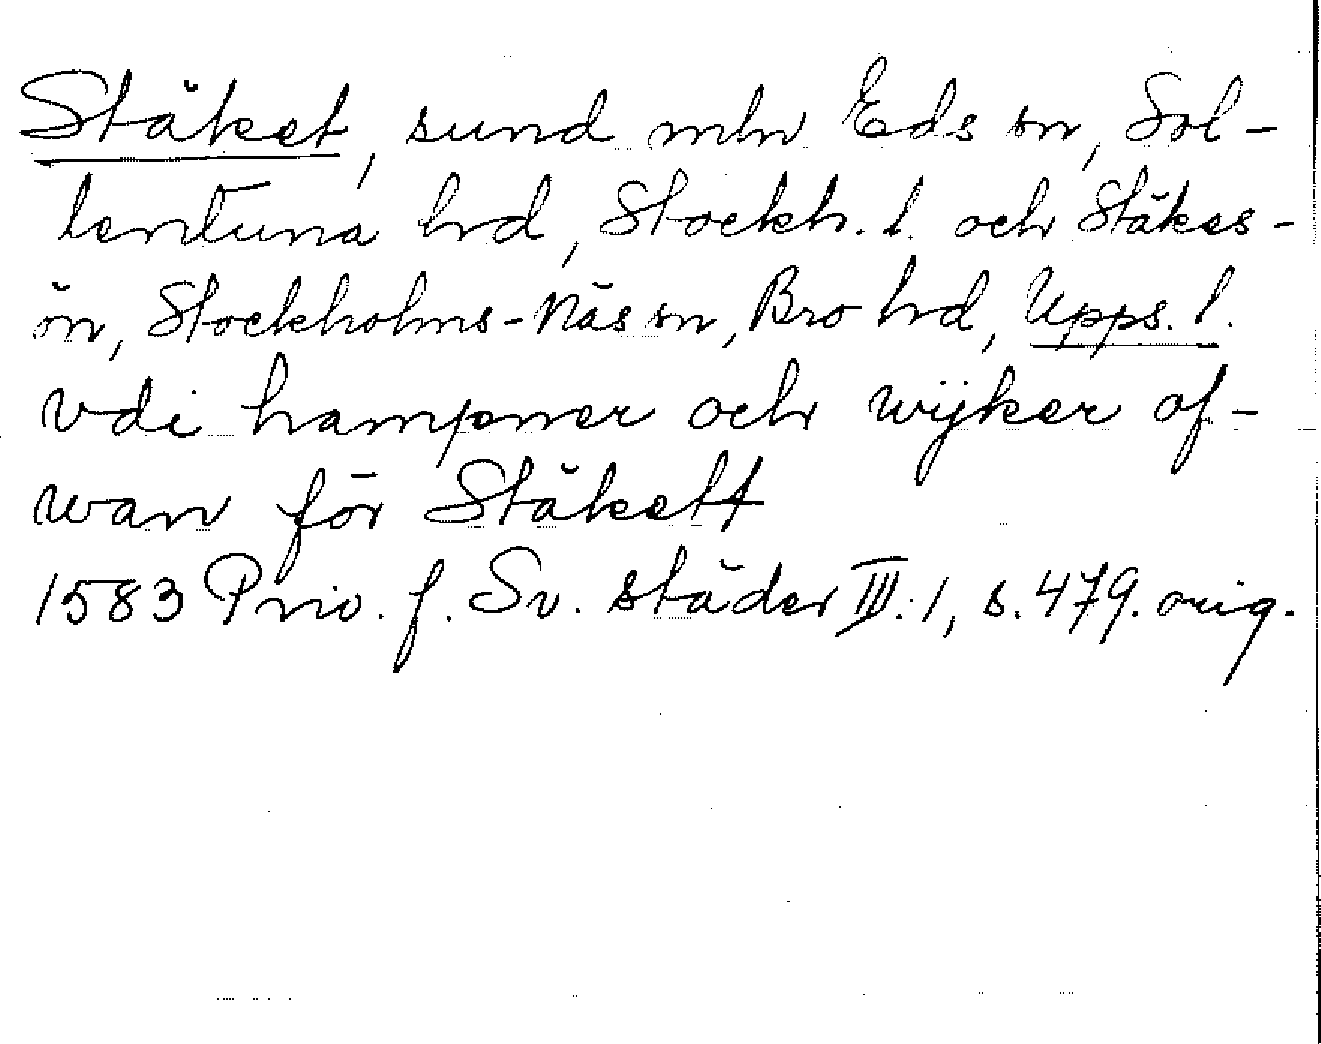 Stäket, sund mln Eds sn, Sol-
lentuna hd, Stockh. l. och Stäkes-
ön, Stockholms-Näs sn, Bro hd, Upps. l.
vdi hampner och wijker of-
wan för Stäkett
1583 Priv. f. Sv. städer III:1, s. 479. orig.